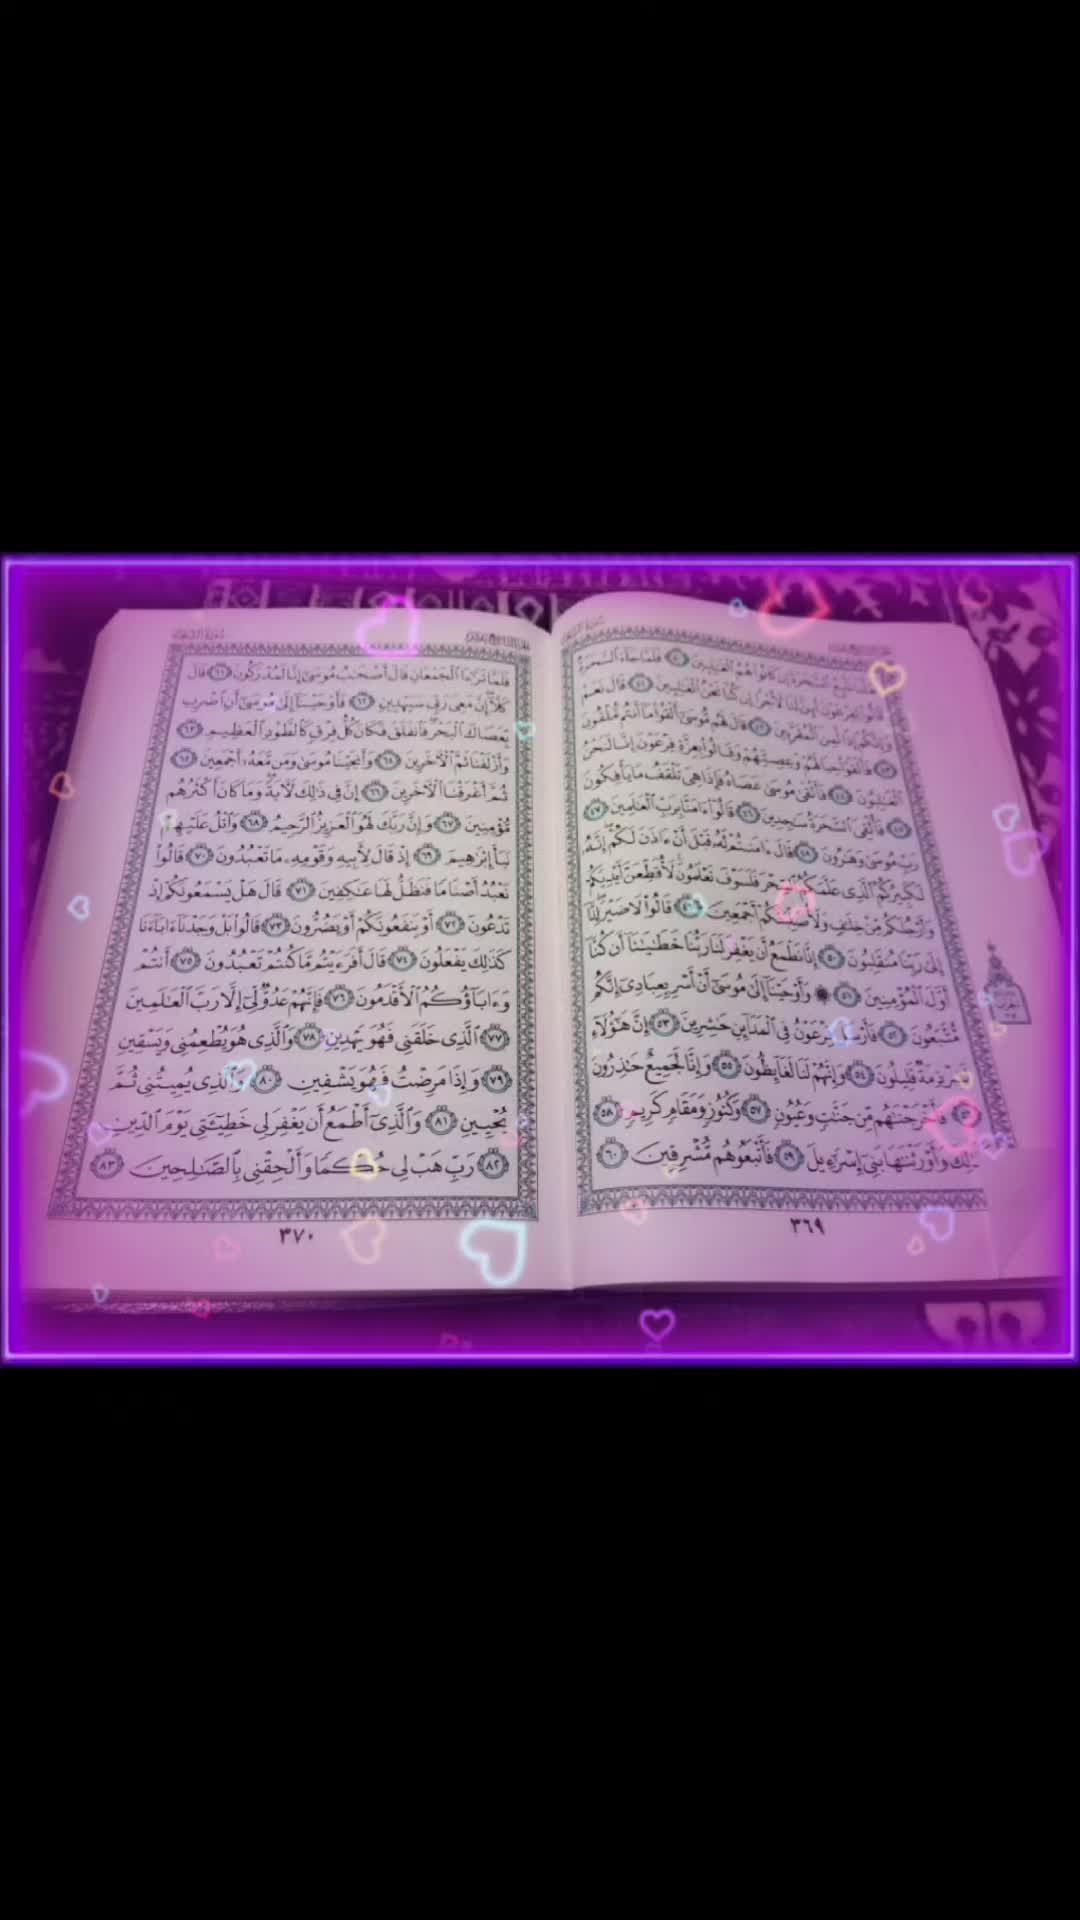 سُورَةُ الشُّعَرَاءِ الجُزْءُ التَّاسِعَ عَشَرَ
لَعَلَّنَا نَتَّبِعُ ٱلسَّحَرَةَ إِن كَانُوا۟ هُمُ ٱلْغَـٰلِبِينَ ٤٠ فَلَمَّا جَآءَ ٱلسَّحَرَةُ
قَالُوا۟ لِفِرْعَوْنَ أَئِنَّ لَنَا لَأَجْرًا إِن كُنَّا نَحْنُ ٱلْغَـٰلِبِينَ ٤١ قَالَ نَعَمْ
وَإِنَّكُمْ إِذًا لَّمِنَ ٱلْمُقَرَّبِينَ ٤٢ قَالَ لَهُم مُّوسَىٰٓ أَلْقُوا۟ مَآ أَنتُم مُّلْقُونَ
٤٣ فَأَلْقَوْا۟ حِبَالَهُمْ وَعِصِيَّهُمْ وَقَالُوا۟ بِعِزَّةِ فِرْعَوْنَ إِنَّا لَنَحْنُ
ٱلْغَـٰلِبُونَ ٤٤ فَأَلْقَىٰ مُوسَىٰ عَصَاهُ فَإِذَا هِىَ تَلْقَفُ مَا يَأْفِكُونَ
٤٥ فَأُلْقِىَ ٱلسَّحَرَةُ سَـٰجِدِينَ ٤٦ قَالُوٓا۟ ءَامَنَّا بِرَبِّ ٱلْعَـٰلَمِينَ ٤٧
رَبِّ مُوسَىٰ وَهَـٰرُونَ ٤٨ قَالَ ءَامَنتُمْ لَهُۥ قَبْلَ أَنْ ءَاذَنَ لَكُمْ ۖ إِنَّهُۥ
لَكَبِيرُكُمُ ٱلَّذِى عَلَّمَكُمُ ٱلسِّحْرَ فَلَسَوْفَ تَعْلَمُونَ ۚ لَأُقَطِّعَنَّ أَيْدِيَكُمْ
وَأَرْجُلَكُم مِّنْ خِلَـٰفٍ وَلَأُصَلِّبَنَّكُمْ أَجْمَعِينَ ٤٩ قَالُوا۟ لَا ضَيْرَ ۖ إِنَّآ
إِلَىٰ رَبِّنَا مُنقَلِبُونَ ٥٠ إِنَّا نَطْمَعُ أَن يَغْفِرَ لَنَا رَبُّنَا خَطَـٰيَـٰنَآ أَن كُنَّآ
أَوَّلَ ٱلْمُؤْمِنِينَ ٥١ ۞ وَأَوْحَيْنَآ إِلَىٰ مُوسَىٰٓ أَنْ أَسْرِ بِعِبَادِىٓ إِنَّكُم
مُّتَّبَعُونَ ٥٢ فَأَرْسَلَ فِرْعَوْنُ فِى ٱلْمَدَآئِنِ حَـٰشِرِينَ ٥٣ إِنَّ هَـٰٓؤُلَآءِ
لَشِرْذِمَةٌ قَلِيلُونَ ٥٤ وَإِنَّهُمْ لَنَا لَغَآئِظُونَ ٥٥ وَإِنَّا لَجَمِيعٌ حَـٰذِرُونَ
٥٦ فَأَخْرَجْنَـٰهُم مِّن جَنَّـٰتٍ وَعُيُونٍ ٥٧ وَكُنُوزٍ وَمَقَامٍ كَرِيمٍ ٥٨
كَذَٰلِكَ وَأَوْرَثْنَـٰهَا بَنِىٓ إِسْرَٰٓءِيلَ ٥٩ فَأَتْبَعُوهُم مُّشْرِقِينَ ٦٠
٣٦٩
سُورَةُ الشُّعَرَاءِ الجُزْءُ التَّاسِعَ عَشَرَ
فَلَمَّا تَرَٰٓءَا ٱلْجَمْعَانِ قَالَ أَصْحَـٰبُ مُوسَىٰٓ إِنَّا لَمُدْرَكُونَ ٦١ قَالَ
كَلَّآ ۖ إِنَّ مَعِىَ رَبِّى سَيَهْدِينِ ٦٢ فَأَوْحَيْنَآ إِلَىٰ مُوسَىٰٓ أَنِ ٱضْرِب
بِّعَصَاكَ ٱلْبَحْرَ ۖ فَٱنفَلَقَ فَكَانَ كُلُّ فِرْقٍ كَٱلطَّوْدِ ٱلْعَظِيمِ ٦٣
وَأَزْلَفْنَا ثَمَّ ٱلْـَٔاخَرِينَ ٦٤ وَأَنجَيْنَا مُوسَىٰ وَمَن مَّعَهُۥٓ أَجْمَعِينَ ٦٥
ثُمَّ أَغْرَقْنَا ٱلْـَٔاخَرِينَ ٦٦ إِنَّ فِى ذَٰلِكَ لَـَٔايَةً ۖ وَمَا كَانَ أَكْثَرُهُم
مُّؤْمِنِينَ ٦٧ وَإِنَّ رَبَّكَ لَهُوَ ٱلْعَزِيزُ ٱلرَّحِيمُ ٦٨ وَٱتْلُ عَلَيْهِمْ
نَبَأَ إِبْرَٰهِيمَ ٦٩ إِذْ قَالَ لِأَبِيهِ وَقَوْمِهِۦ مَا تَعْبُدُونَ ٧٠ قَالُوا۟
نَعْبُدُ أَصْنَامًا فَنَظَلُّ لَهَا عَـٰكِفِينَ ٧١ قَالَ هَلْ يَسْمَعُونَكُمْ إِذْ
تَدْعُونَ ٧٢ أَوْ يَنفَعُونَكُمْ أَوْ يَضُرُّونَ ٧٣ قَالُوا۟ بَلْ وَجَدْنَآ ءَابَآءَنَا
كَذَٰلِكَ يَفْعَلُونَ ٧٤ قَالَ أَفَرَءَيْتُم مَّا كُنتُمْ تَعْبُدُونَ ٧٥ أَنتُمْ
وَءَابَآؤُكُمُ ٱلْأَقْدَمُونَ ٧٦ فَإِنَّهُمْ عَدُوٌّ لِّىٓ إِلَّا رَبَّ ٱلْعَـٰلَمِينَ
٧٧ ٱلَّذِى خَلَقَنِى فَهُوَ يَهْدِينِ ٧٨ وَٱلَّذِى هُوَ يُطْعِمُنِى وَيَسْقِينِ
٧٩ وَإِذَا مَرِضْتُ فَهُوَ يَشْفِينِ ٨٠ وَٱلَّذِى يُمِيتُنِى ثُمَّ
يُحْيِينِ ٨١ وَٱلَّذِىٓ أَطْمَعُ أَن يَغْفِرَ لِى خَطِيٓـَٔتِى يَوْمَ ٱلدِّينِ
٨٢ رَبِّ هَبْ لِى حُكْمًا وَأَلْحِقْنِى بِٱلصَّـٰلِحِينَ ٨٣
٣٧٠